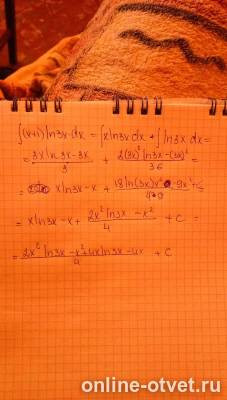 ∫(x+1)ln3x·dx = ∫x ln3x dx + ∫ln3x dx =
= (3x ln3x-3x)/3 + (2(3x)² ln3x-(3x)²)/36 =
= x ln3x-x +
= x ln3x-x + (2x² ln3x - x²)/4 + C =
= (2x² ln3x-x²+4x ln3x-4x)/4 + C
online-otvet.ru